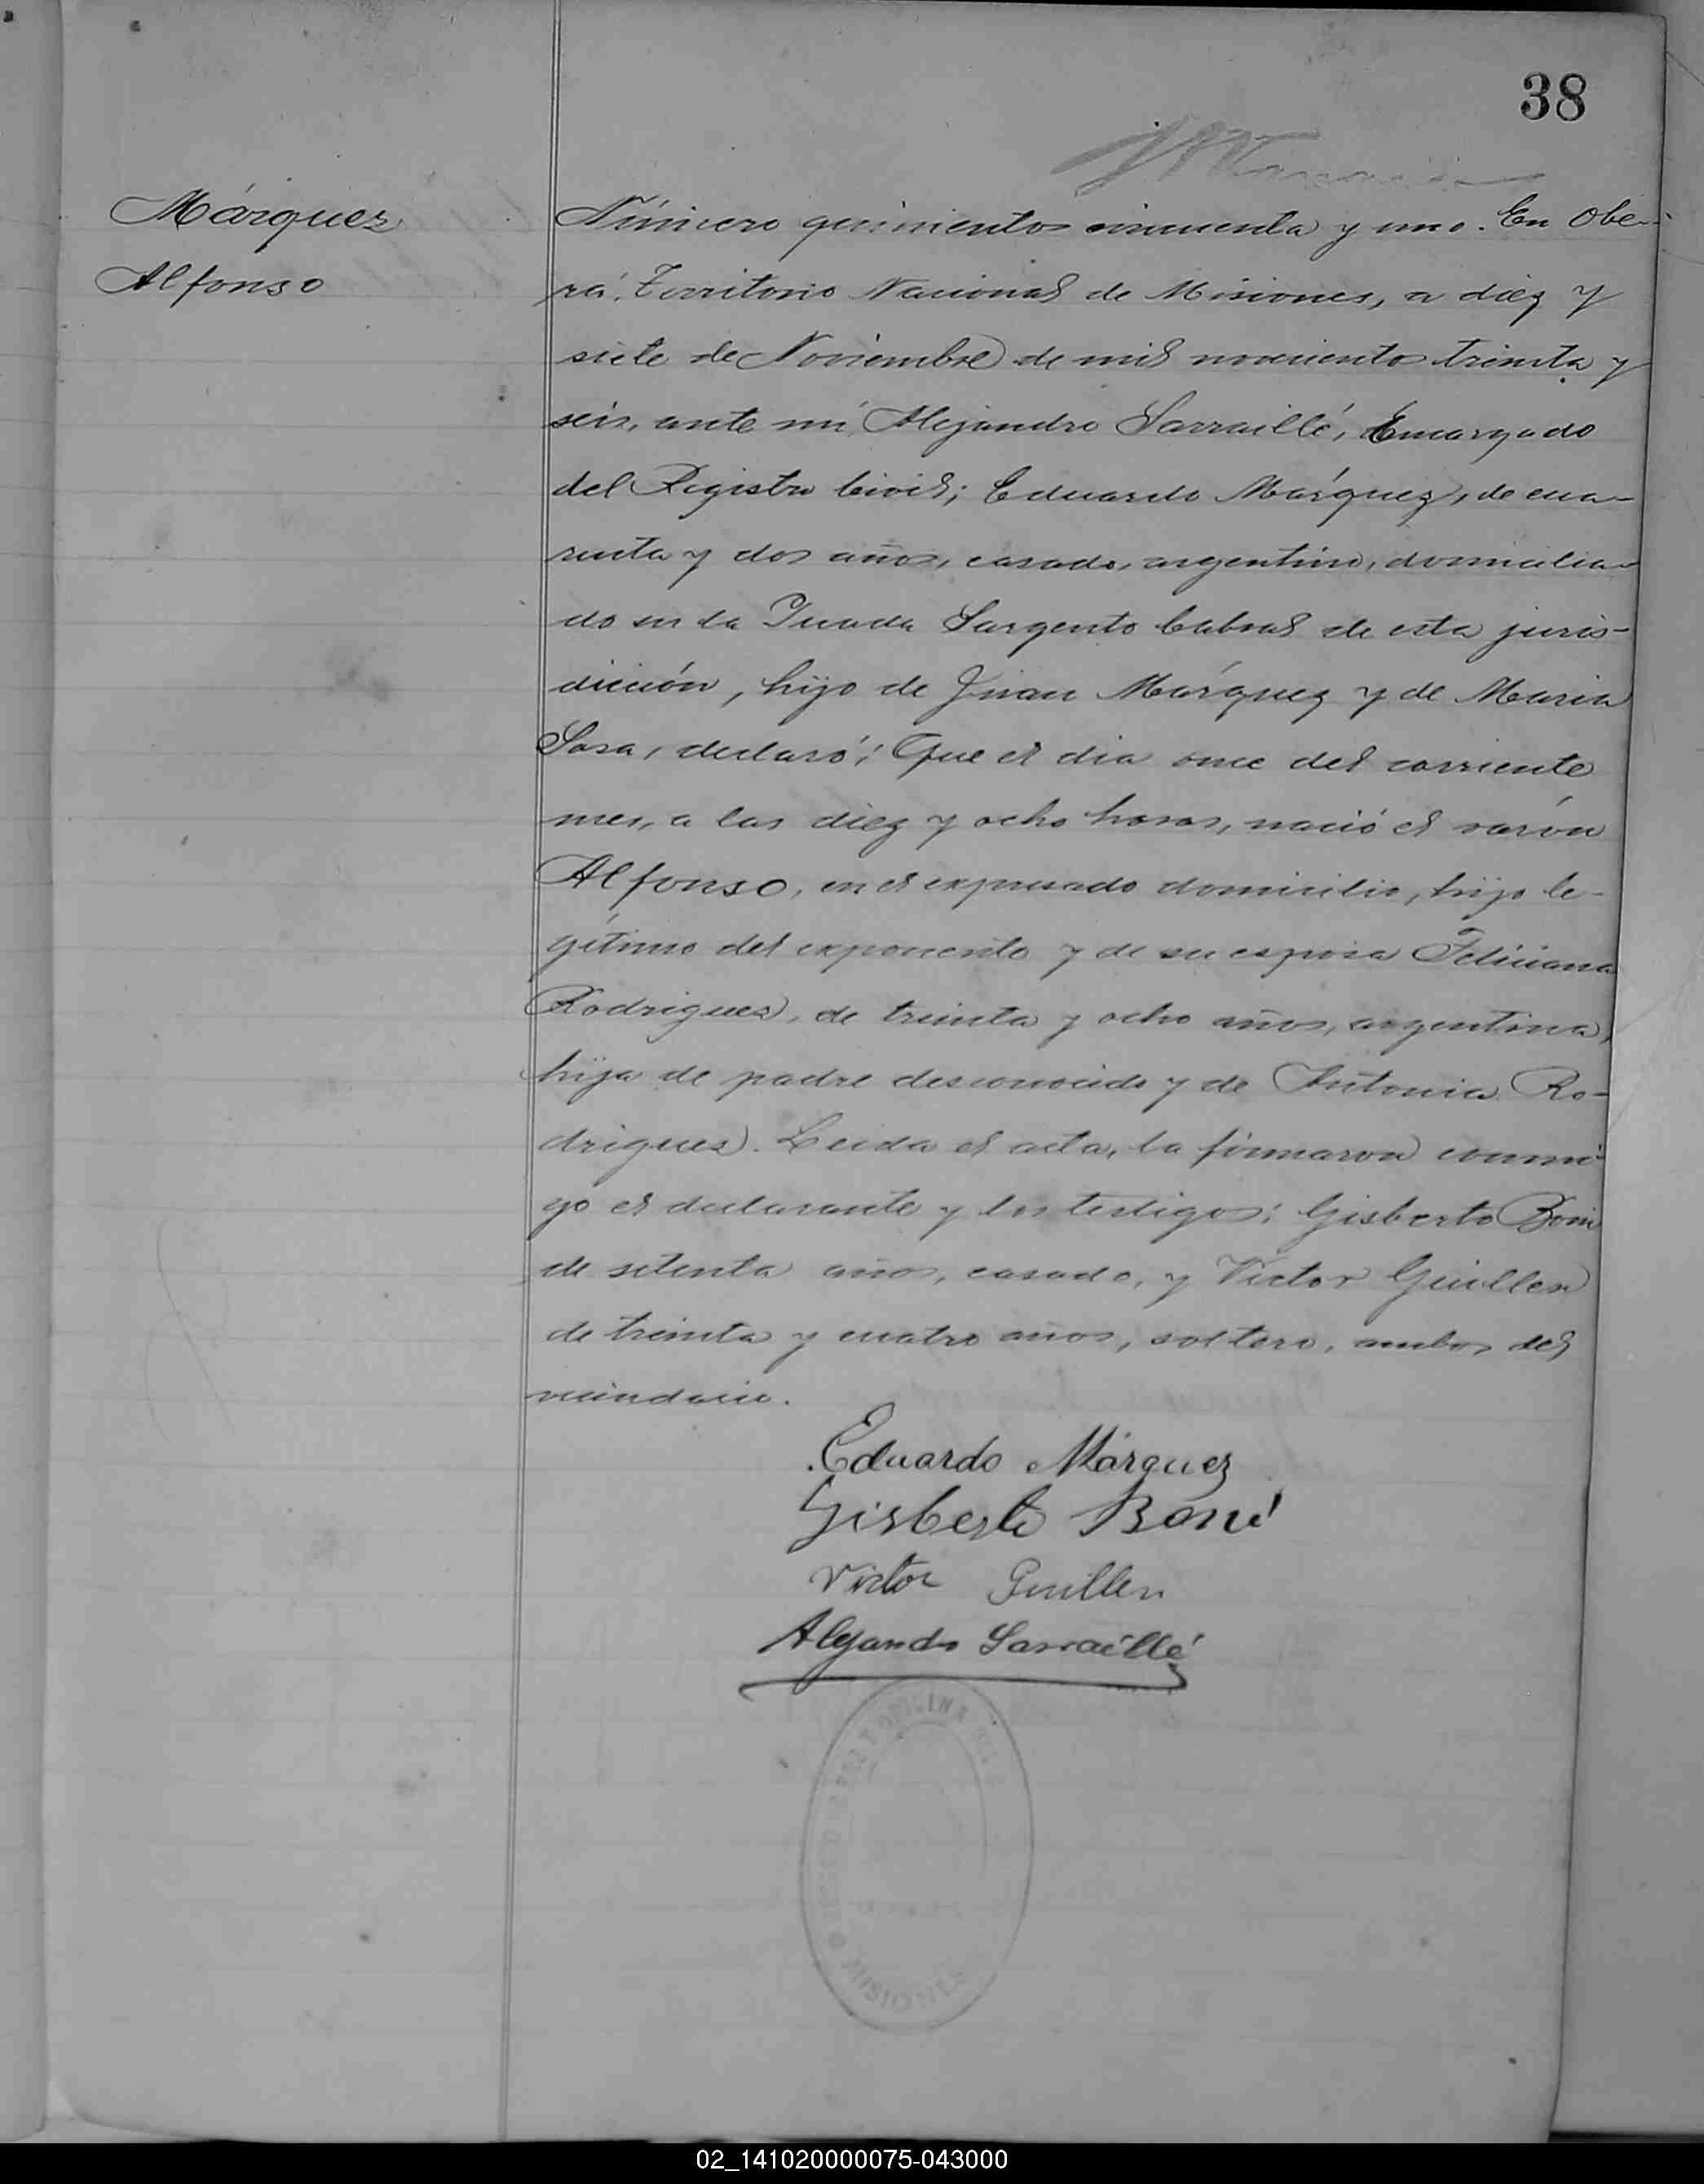 38
Márquez
Alfonso
Número quinientos cincuenta y uno. En Obe-
rá, Territorio Nacional de Misiones, a diez y
siete de Noviembre de mil novecientos treinta y
seis, ante mí Alejandro Sarraillé, Encargado
del Registro Civil; Eduardo Márquez, de cua-
renta y dos años, casado, argentino, domicilia-
do en la Picada Sargento Cabral de esta juris-
dicción, hijo de Juan Márquez y de Maria
Sosa, declaró: Que el dia once del corriente
mes, a las diez y ocho horas, nació el varón
Alfonso, en el expresado domicilio, hijo le-
gítimo del exponente y de su esposa Feliciana
Rodriguez, de treinta y ocho años, argentina,
hija de padre desconocido y de Antonia Ro-
driguez. Leida el acta, la firmaron conmi-
go el declarante y los testigos: Gisberto Boni
de setenta años, casado, y Victor Guillen
de treinta y cuatro años, soltero, ambos del
vecindario.
Eduardo Márquez
Gisberto Boni
Victor Guillen
Alejandro Sarraillé
MISIONES
02_141020000075-043000